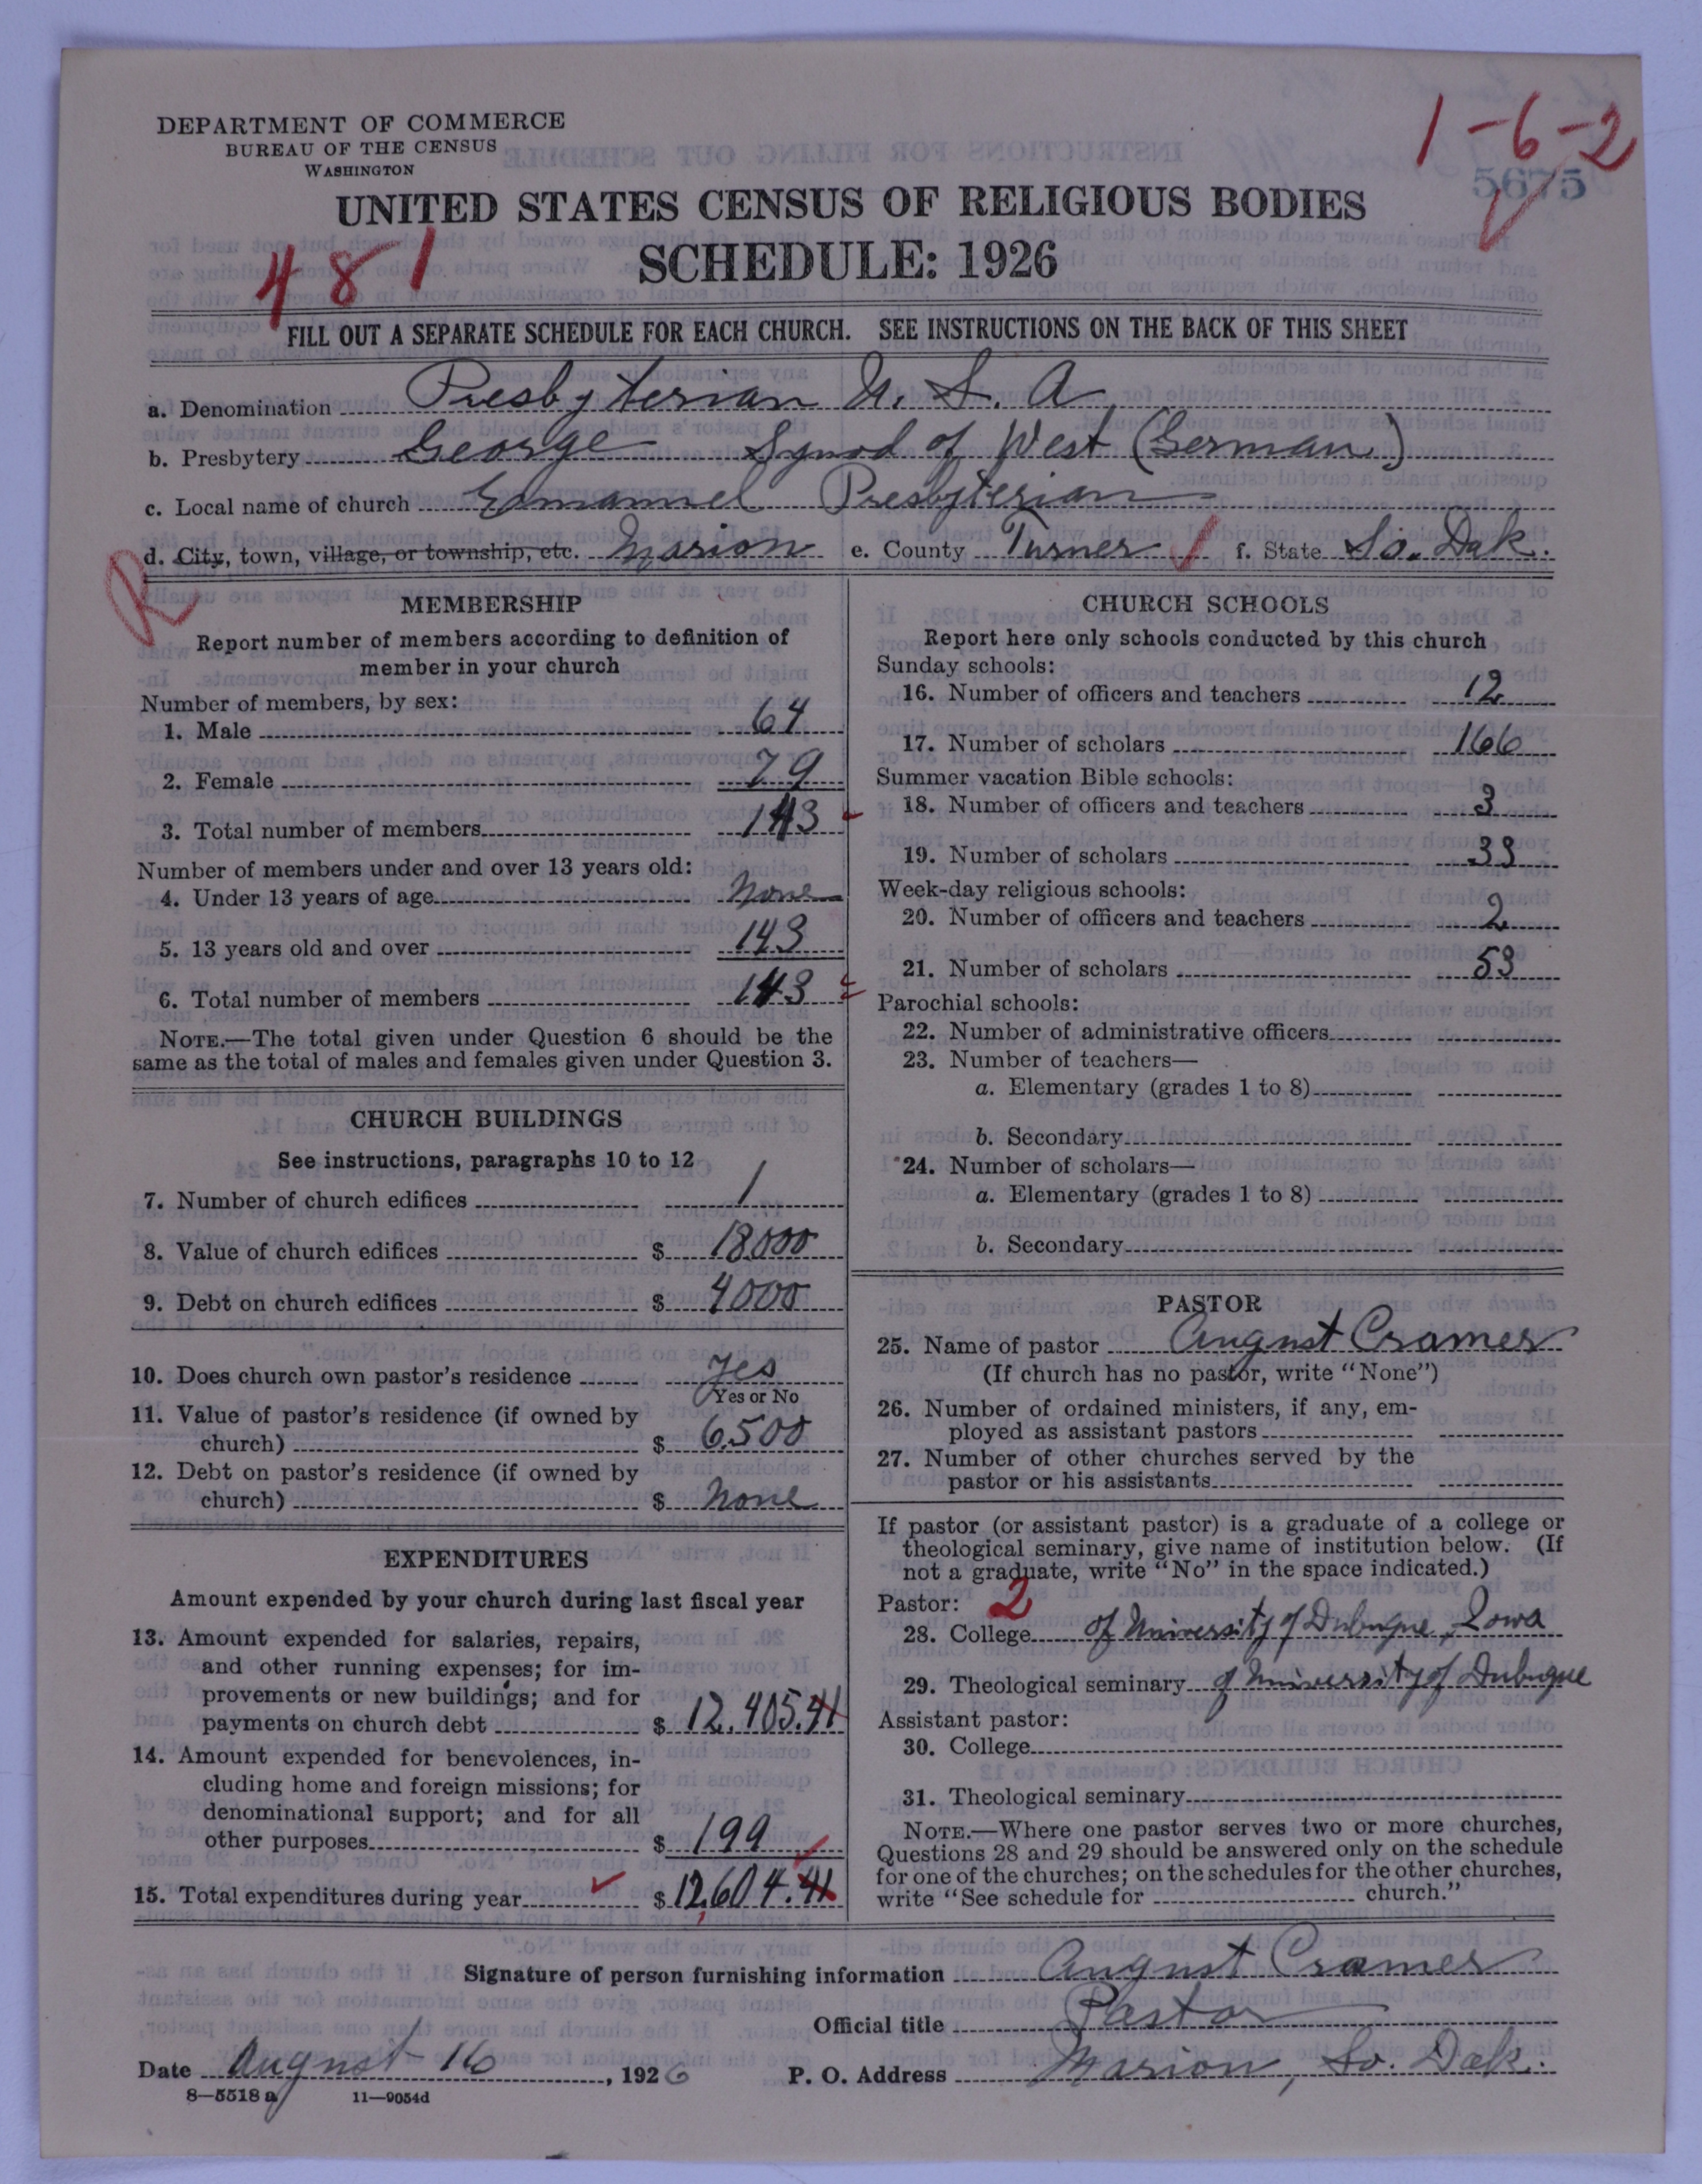 DEPARTMENT OF COMMERCE
BUREAU OF THE CENSUS
WASHINGTON
1-6-2
5675
UNITED STATES CENSUS OF RELIGIOUS BODIES
481
SCHEDULE: 1926
FILL OUT A SEPARATE SCHEDULE FOR EACH CHURCH. SEE INSTRUCTIONS ON THE BACK OF THIS SHEET
a. Denomination Presbyterian U. S. A
b. Presbytery George Synod of West (German)
c. Local name of church Emanuel Presbyterian
d. City, town, village, or township, etc. Marion e. County Turner f. State So. Dak.
R
MEMBERSHIP
Report number of members according to definition of
member in your church
Number of members, by sex:
1. Male 64
2. Female 79
3. Total number of members 143
Number of members under and over 13 years old:
4. Under 13 years of age None
5. 13 years old and over 143
6. Total number of members 143
NOTE.—The total given under Question 6 should be the
same as the total of males and females given under Question 3.
CHURCH BUILDINGS
See instructions, paragraphs 10 to 12
7. Number of church edifices 1
8. Value of church edifices $ 18000
9. Debt on church edifices $ 4000
10. Does church own pastor's residence Yes
Yes or No
11. Value of pastor's residence (if owned by
church) $ 6,500
12. Debt on pastor's residence (if owned by
church) $ None
EXPENDITURES
Amount expended by your church during last fiscal year
13. Amount expended for salaries, repairs,
and other running expenses; for im-
provements or new buildings; and for
payments on church debt $ 12,405.41
14. Amount expended for benevolences, in-
cluding home and foreign missions; for
denominational support; and for all
other purposes $ 199
15. Total expenditures during year $ 12,604.41
CHURCH SCHOOLS
Report here only schools conducted by this church
Sunday schools:
16. Number of officers and teachers 12
17. Number of scholars 166
Summer vacation Bible schools:
18. Number of officers and teachers 3
19. Number of scholars 33
Week-day religious schools:
20. Number of officers and teachers 2
21. Number of scholars 53
Parochial schools:
22. Number of administrative officers
23. Number of teachers—
a. Elementary (grades 1 to 8)
b. Secondary
24. Number of scholars—
a. Elementary (grades 1 to 8)
b. Secondary
PASTOR
25. Name of pastor August Cramer
(If church has no pastor, write "None")
26. Number of ordained ministers, if any, em-
ployed as assistant pastors
27. Number of other churches served by the
pastor or his assistants
If pastor (or assistant pastor) is a graduate of a college or
theological seminary, give name of institution below. (If
not a graduate, write "No" in the space indicated.)
Pastor: 2
28. College of University of Dubuque, Iowa
29. Theological seminary of University of Dubuque
Assistant pastor:
30. College
31. Theological seminary
NOTE.—Where one pastor serves two or more churches,
Questions 28 and 29 should be answered only on the schedule
for one of the churches; on the schedules for the other churches,
write "See schedule for church."
Signature of person furnishing information August Cramer
Official title Pastor
Date August 16, 1926 P. O. Address Marion, So. Dak.
8—5518 a 11—9054d